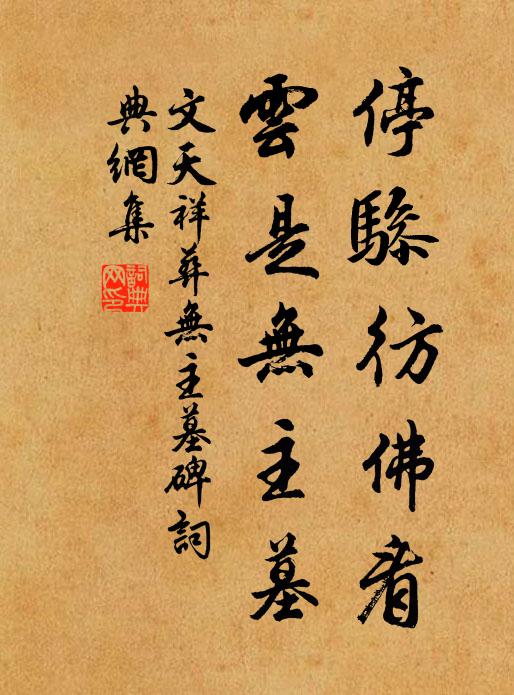 停驂彷佛看
雲是無主墓
文天祥葬無主墓碑詞
典網集
詞典
网印